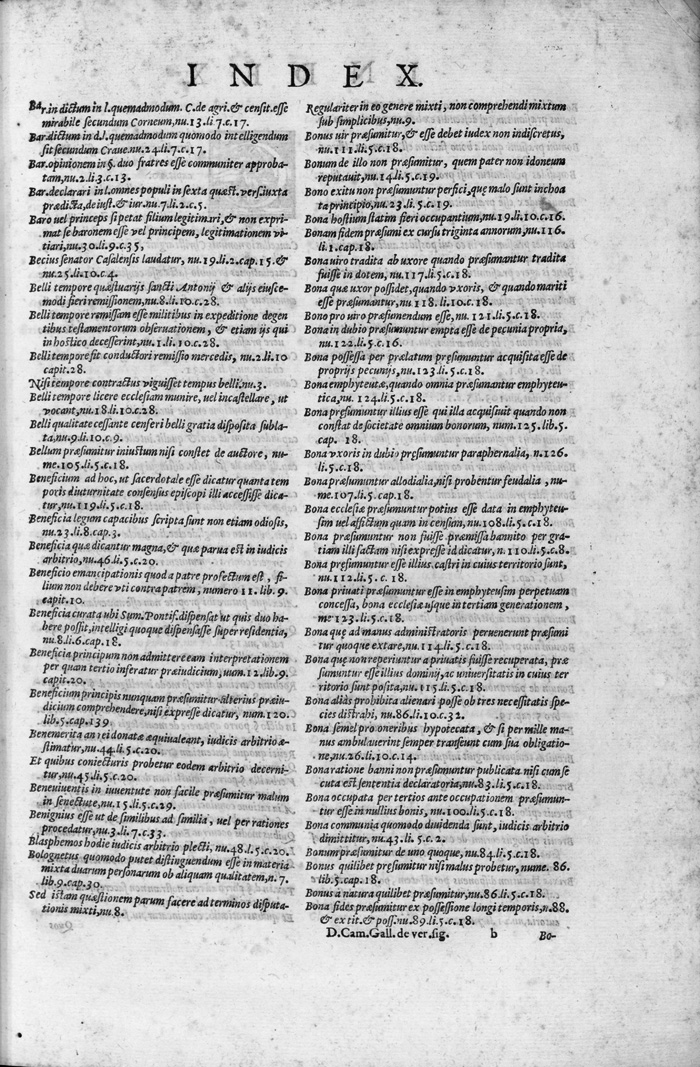 INDEX.
Bar.in dictum in l.quemadmodum. C.de agri.& censit.esse
mirabile secundum Corneum,nu.13.li.7.c.17.
Bar.dictum in d.l.quemadmodum quomodo intelligendum
sit secundum Craue.nu.24.li.7.c.17.
Bar.opinionem in §. duo fratres esse communiter approba-
tam,nu.2.li.3.c.13.
Bar.declarari in l.omnes populi in sexta quæst.vers.iuxta
prædicta,de iust.& iur.nu.7.li.2.c.5.
Baro uel princeps si petat filium legitimari,& non expri-
mat se baronem esse vel principem, legitimationem vi-
tiari,nu.30.li.9.c.35,
Becius senator Casalensis laudatur, nu.19.li.2.cap.15.&
nu.25.li.10.c.4.
Belli tempore quæstuarijs sancti Antonij & alijs eiusce-
modi fieri remissionem,nu.8.li.10.c.28.
Belli tempore remissam esse militibus in expeditione degen
tibus testamentorum obseruationem, & etiam ijs qui
in hostico decesserint,nu.1.li.10.c.28.
Belli tempore sit conductori remissio mercedis, nu.2.li.10
capit.28.
Nisi tempore contractus viguisset tempus belli nu.3.
Belli tempore licere ecclesiam munire, uel incastellare, ut
vocant,nu.18.li.10.c.28.
Belli qualitate cessante censeri belli gratia disposita subla-
ta,nu.9.li.10.c.9.
Bellum præsumitur iniustum nisi constet de auctore, nu-
me.105.li.5.c.18.
Beneficium ad hoc, ut sacerdotale esse dicatur quanta tem
poris diuturnitate consensus episcopi illi accessisse dica-
tur,nu.119.li.5.c.18.
Beneficia legum capacibus scripta sunt non etiam odiosis,
nu.23.li.8.cap.3.
Beneficia quæ dicantur magna,& quæ parua est in iudicis
arbitrio,nu.46.li.5.c.20.
Beneficio emancipationis quod a patre profectum est, fi-
lium non debere vti contra patrem, numero 11. lib.9.
capit.10.
Beneficia curata ubi Sum. Pontif.dispensat ut quis duo ha-
bere possit,intelligi quoque dispensasse super residentia,
nu.8.li.6.cap.18.
Beneficia principum non admittere eam interpretationem
per quam tertio inferatur præiudicium, num.12.lib.9.
capit.20.
Beneficium principis nunquam præsumitur alterius præiu-
dicium comprehendere,nisi expresse dicatur, num.120.
lib.5.cap.139
Benemerita an rei donatæ æquiualeant, iudicis arbitrio æ-
stimatur,nu.44.li.5.c.20.
Et quibus coniecturis probetur eodem arbitrio decerni-
tur,nu.45.li.5.c.20.
Beneuiuentis in iuuentute non facile præsumitur malum
in senectute,nu.15.li.5.c.29.
Benignius esse ut de similibus ad similia, uel per rationes
procedatur,nu.3.li.7.c.33.
Blasphemos hodie iudicis arbitrio plecti, nu.48.l.5.c.20.
Bolognetus quomodo putet distinguendum esse in materia
mixta duarum personarum ob aliquam qualitatem, n.7.
lib.9.cap.30.
Sed istam quæstionem parum facere ad terminos disputa-
tionis mixti,nu.8.
Regulariter in eo genere mixti, non comprehendi mixtum
sub simplicibus,nu.9.
Bonus uir præsumitur,& esse debet iudex non indiscretus,
nu.111.li.5.c.18.
Bonum de illo non præsumitur, quem pater non idoneum
reputauit,nu.14.li.5.c.19.
Bono exitu non præsumuntur perfici,quę malo sunt inchoa
ta principio,nu.23.li.5.c.19.
Bona hostium statim fieri occupantium,nu.19.li.10.c.16.
Bonam fidem præsumi ex cursu triginta annorum, nu.116.
li.1.cap.18.
Bona uiro tradita ab uxore quando præsumantur tradita
fuisse in dotem, nu.117.li.5.c.18.
Bona quæ uxor possidet,quando vxoris, & quando mariti
esse præsumantur,nu 118.li.10.c.18.
Bono pro uiro præsumendum esse,nu.121.li.5.c.18.
Bona in dubio præsumuntur empta esse de pecunia propria,
nu.122.li.5.c.16.
Bona possessa per prælatum pręsumuntur acquisita esse de
proprijs pecunijs,nu.123.li.5.c.18.
Bona emphyteutæ,quando omnia præsumantur emphyteu-
tica,nu. 124.li.5.c.18.
Bona pręsumuntur illius esse qui illa acquisiuit quando non
constat de societate omnium bonorum, num.125.lib.5.
cap. 18.
Bona vxoris in dubio pręsumuntur paraphernalia, n.126.
li.5.c.18.
Bona præsumuntur allodialia,nisi probentur feudalia , nu-
me.107.li.5.cap.18.
Bona ecclesiæ præsumuntur potius esse data in emphyteu-
sim uel affictum quam in censum,nu.108.li.5.c.18.
Bona præsumuntur non fuisse præmissa bannito per gra-
tiam illi factam nisi expresse id dicatur, n.110.li.5.c.8.
Bona pręsumuntur esse illius castri in cuius territorio sunt,
nu.112.li.5.c. 18.
Bona priuati præsumuntur esse in emphyteusim perpetuam
concessa, bona ecclesiæ usque in tertiam generationem,
me 123.li.5.c.18.
Bona quę ad manus administratoris peruenerunt præsumi
tur quoque extare,nu.114.li.5.c.18.
Bona quę non reperiuntur a priuatis fuisse recuperata, præ
sumuntur esse illius dominij, ac uniuersitatis in cuius ter
ritorio sunt posita,nu.115.li.5.c.18.
Bona aliâs prohibita alienari posse ob tres necessitatis spe-
cies distrahi, nu.86.li.10.c.32.
Bona semel pro oneribus hypotecata, & si per mille ma-
nus ambulauerint semper transeunt cum sua obligatio-
ne,nu.26.li.10.c.14.
Bona ratione banni non præsumuntur publicata nisi cum se
cuta est sententia declaratoria,nu.83.li.5.c.18.
Bona occupata per tertios ante occupationem præsumun-
tur esse in nullius bonis, nu.100.li.5.c.18.
Bona communia quomodo diuidenda sunt, iudicis arbitrio
dimittitur,nu.43.li.5.c.2.
Bonum præsumitur de uno quoque,nu.84.li.5.c.18.
Bonus quilibet pręsumitur nisi malus probetur, nume. 86.
lib.5.cap.18.
Bonus a natura quilibet præsumitur,nu.86.li.5.c.18.
Bona fides præsumitur ex possessione longi temporis,n.88.
& ex tit.& poss.nu.89.li.5.c.18.
D.Cam.Gall.de ver.sig. b Bo-